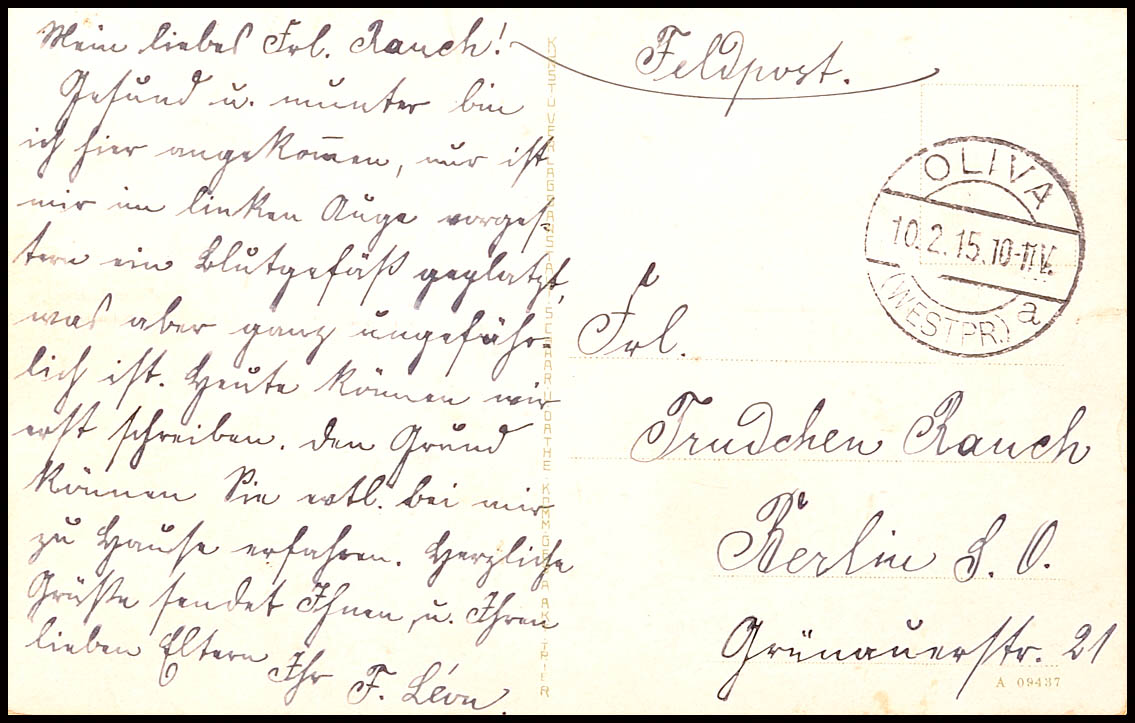 Mein liebes Frl. Rauch!
Gesund u. munter bin
ich hier angekom̅en, nur ist
mir im linken Auge vorges-
tern ein Blutgefäß geplatzt,
was aber ganz ungefähr-
lich ist. Heute können wir
erst schreiben. Den Grund
können Sie evtl. bei mir
zu Hause erfahren. Herzliche
Grüße sendet Ihnen u. Ihren
lieben Eltern
Ihr F. Léon
KUNST U. VERLAGSANSTALT SCHAAR U. DATHE KOMMGES. A. AKT. TRIER
Feldpost.
OLIVA
10.2.15.10-11V.
(WESTPR.) a
Frl.
Trudchen Rauch
Berlin S. O.
Grünauerstr. 21
A 09437